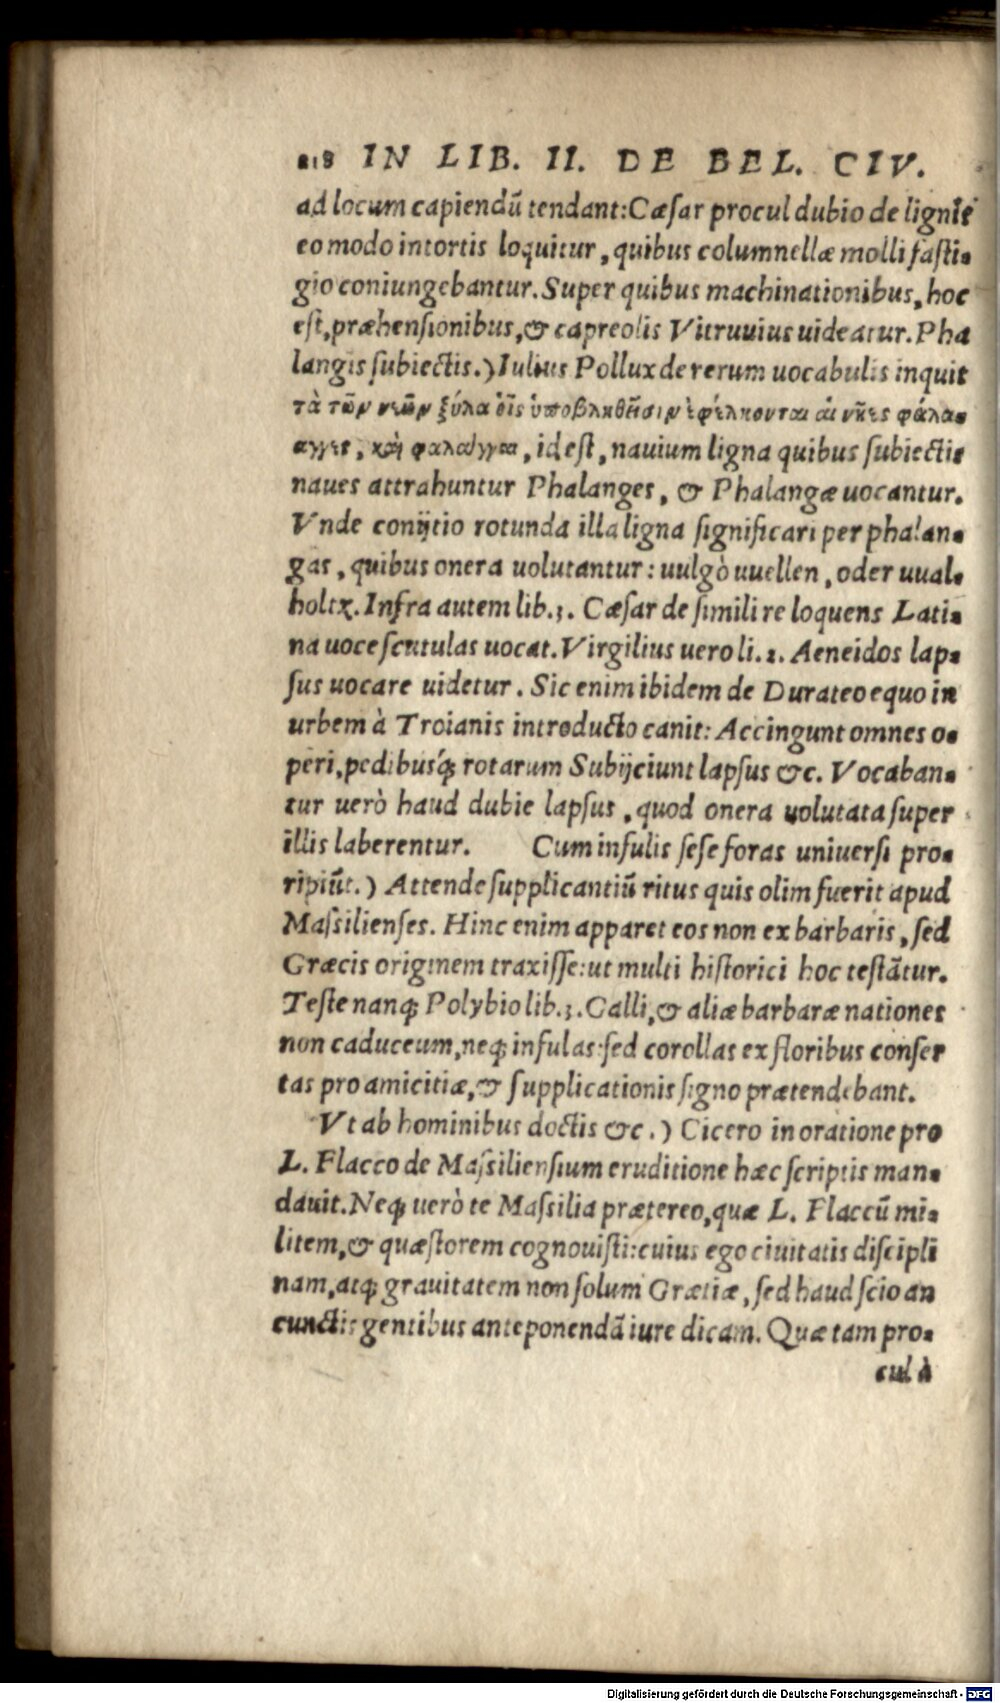 218 IN LIB. II. DE BEL. CIV.
ad locum capiendũ tendant: Cæſar procul dubio de lignis
eo modo intortis loquitur, quibus columnellæ molli faſti-
gio coniungebantur. Super quibus machinationibus, hoc
eſt, præhenſionibus, & capreolis Vitruuius uideatur. Pha
langis ſubiectis.) Iulius Pollux de rerum uocabulis inquit
τὰ τῶν νεῶν ξύλα οἷς ὑποβληθεῖσιν ἐφέλκονται αἱ νῆες φάλα-
αγγες, καὶ φαλάγγαι, id eſt, nauium ligna quibus ſubiectis
naues attrahuntur Phalanges, & Phalangæ uocantur.
Vnde conijtio rotunda illa ligna ſignificari per phalan-
gas, quibus onera uolutantur: uulgò uuellen, oder uual-
holtz. Infra autem lib.3. Cæſar de ſimili re loquens Lati-
na uoce ſcutulas uocat. Virgilius uero li.2. Aeneidos lap-
ſus uocare uidetur. Sic enim ibidem de Durateo equo in
urbem à Troianis introducto canit: Accingunt omnes o-
peri, pedibusq́; rotarum Subijciunt lapſus &c. Vocaban-
tur uerò haud dubie lapſus, quod onera uolutata ſuper
illis laberentur. Cum infulis ſeſe foras uniuerſi pro-
ripiũt.) Attende ſupplicantiũ ritus quis olim fuerit apud
Maſſilienſes. Hinc enim apparet eos non ex barbaris, ſed
Græcis originem traxiſſe: ut multi hiſtorici hoc teſtãtur.
Teſte nanq; Polybio lib.3. Galli, & aliæ barbaræ nationes
non caduceum, neq; infulas: ſed corollas ex floribus conſer
tas pro amicitiæ, & ſupplicationis ſigno prætendebant.
Vt ab hominibus doctis &c.) Cicero in oratione pro
L. Flacco de Maſſilienſium eruditione hæc ſcriptis man-
dauit. Neq; uerò te Maſſilia prætereo, quæ L. Flaccũ mi-
litem, & quæſtorem cognouiſti: cuius ego ciuitatis diſcipli
nam, atq; grauitatem non ſolum Grætiæ, ſed haud ſcio an
cunctis gentibus anteponendã iure dicam. Quæ tam pro-
cul à
Digitalisierung gefördert durch die Deutsche Forschungsgemeinschaft - DFG